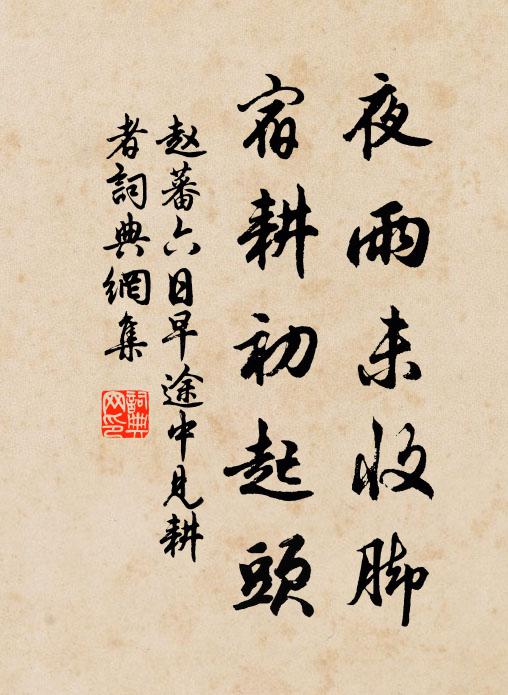 夜雨未收脚
宿耕初起頭
赵蕃六日早途中见耕
者詞典網集
詞典
网印